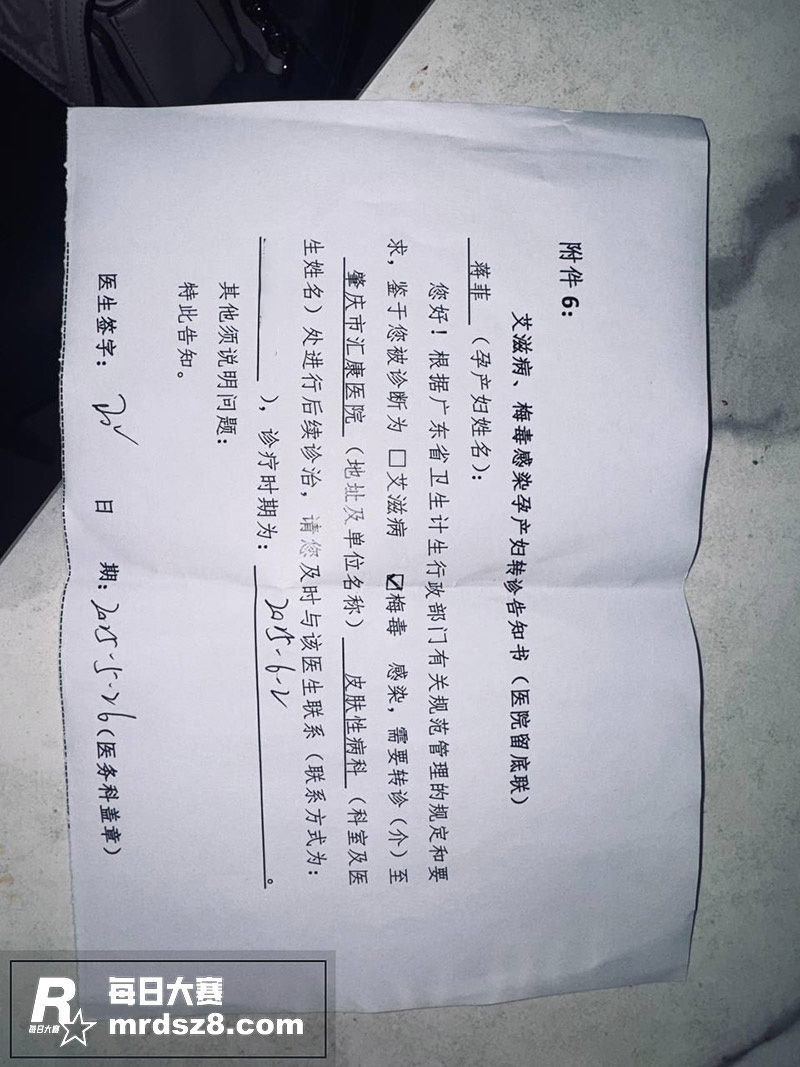 附件 6：
艾滋病、梅毒感染孕产妇转诊告知书（医院留底联）
蒋菲（孕产妇姓名）：
您好！根据广东省卫生计生行政部门有关规范管理的规定和要
求，鉴于您被诊断为 □艾滋病 ☑梅毒 感染，需要转诊（介）至
肇庆市汇康医院（地址及单位名称）皮肤性病科（科室及医
生姓名）处进行后续诊治，请您及时与该医生联系（联系方式为：
），诊疗时期为：2025-6-2。
其他须说明问题：
特此告知。
医生签字： 日 期：2025-5-26（医务科盖章）
R 每日大赛
每日大赛
mrdsz8.com